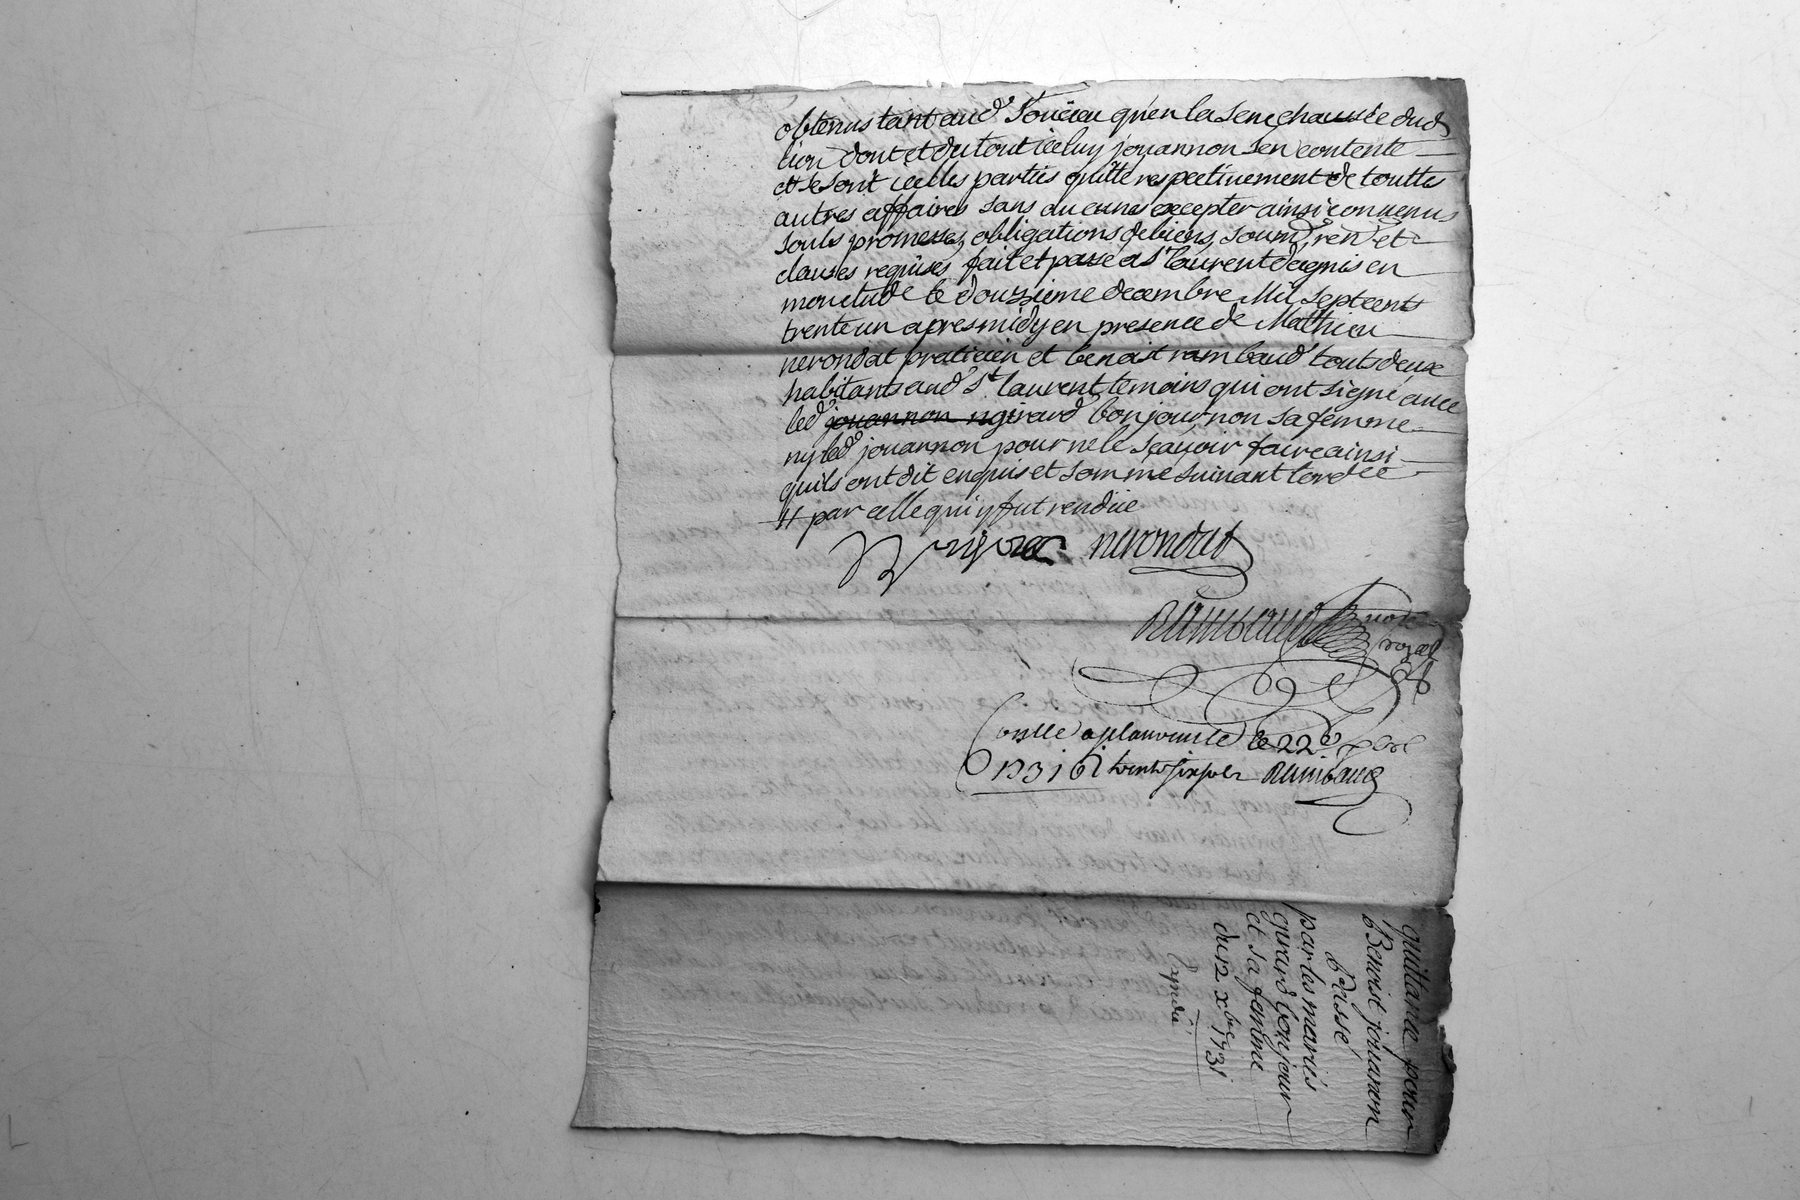 obtenus tant aud Soucieu qu'en la Senechaussée dud
lion dont et du tout iceluy jouannon sen contente
et se sont icelles parties quitté respectivement de touttes
autres affaires sans aucunes excepter ainsi convenus
soubs promesses, obligations de biens, soumr, ren et
clauses requises fait et passé a St laurent dagnis en
mon etude le douzieme decembre Mil sept cents
trente un apres midy en presence de Mathieu
nerondat praticien et benoist rambaud touts deux
habitants aud St laurent temoins qui ont signé avec
led jouannon ny girard bonjour non sa femme
ny led jouannon pour ne le sçavoir faire ainsi
quils ont dit enquis et sommé suivant lord ce
par celle qui y fut rendüe
nerondat
Rambaud not
royal
Conlle a le 22e xbre
1731 trente six sols Rambaud
quittance pour
Benoist jouanon
passé
par les mariés
girard bonjour
et sa femme
du 12 xbre 1731